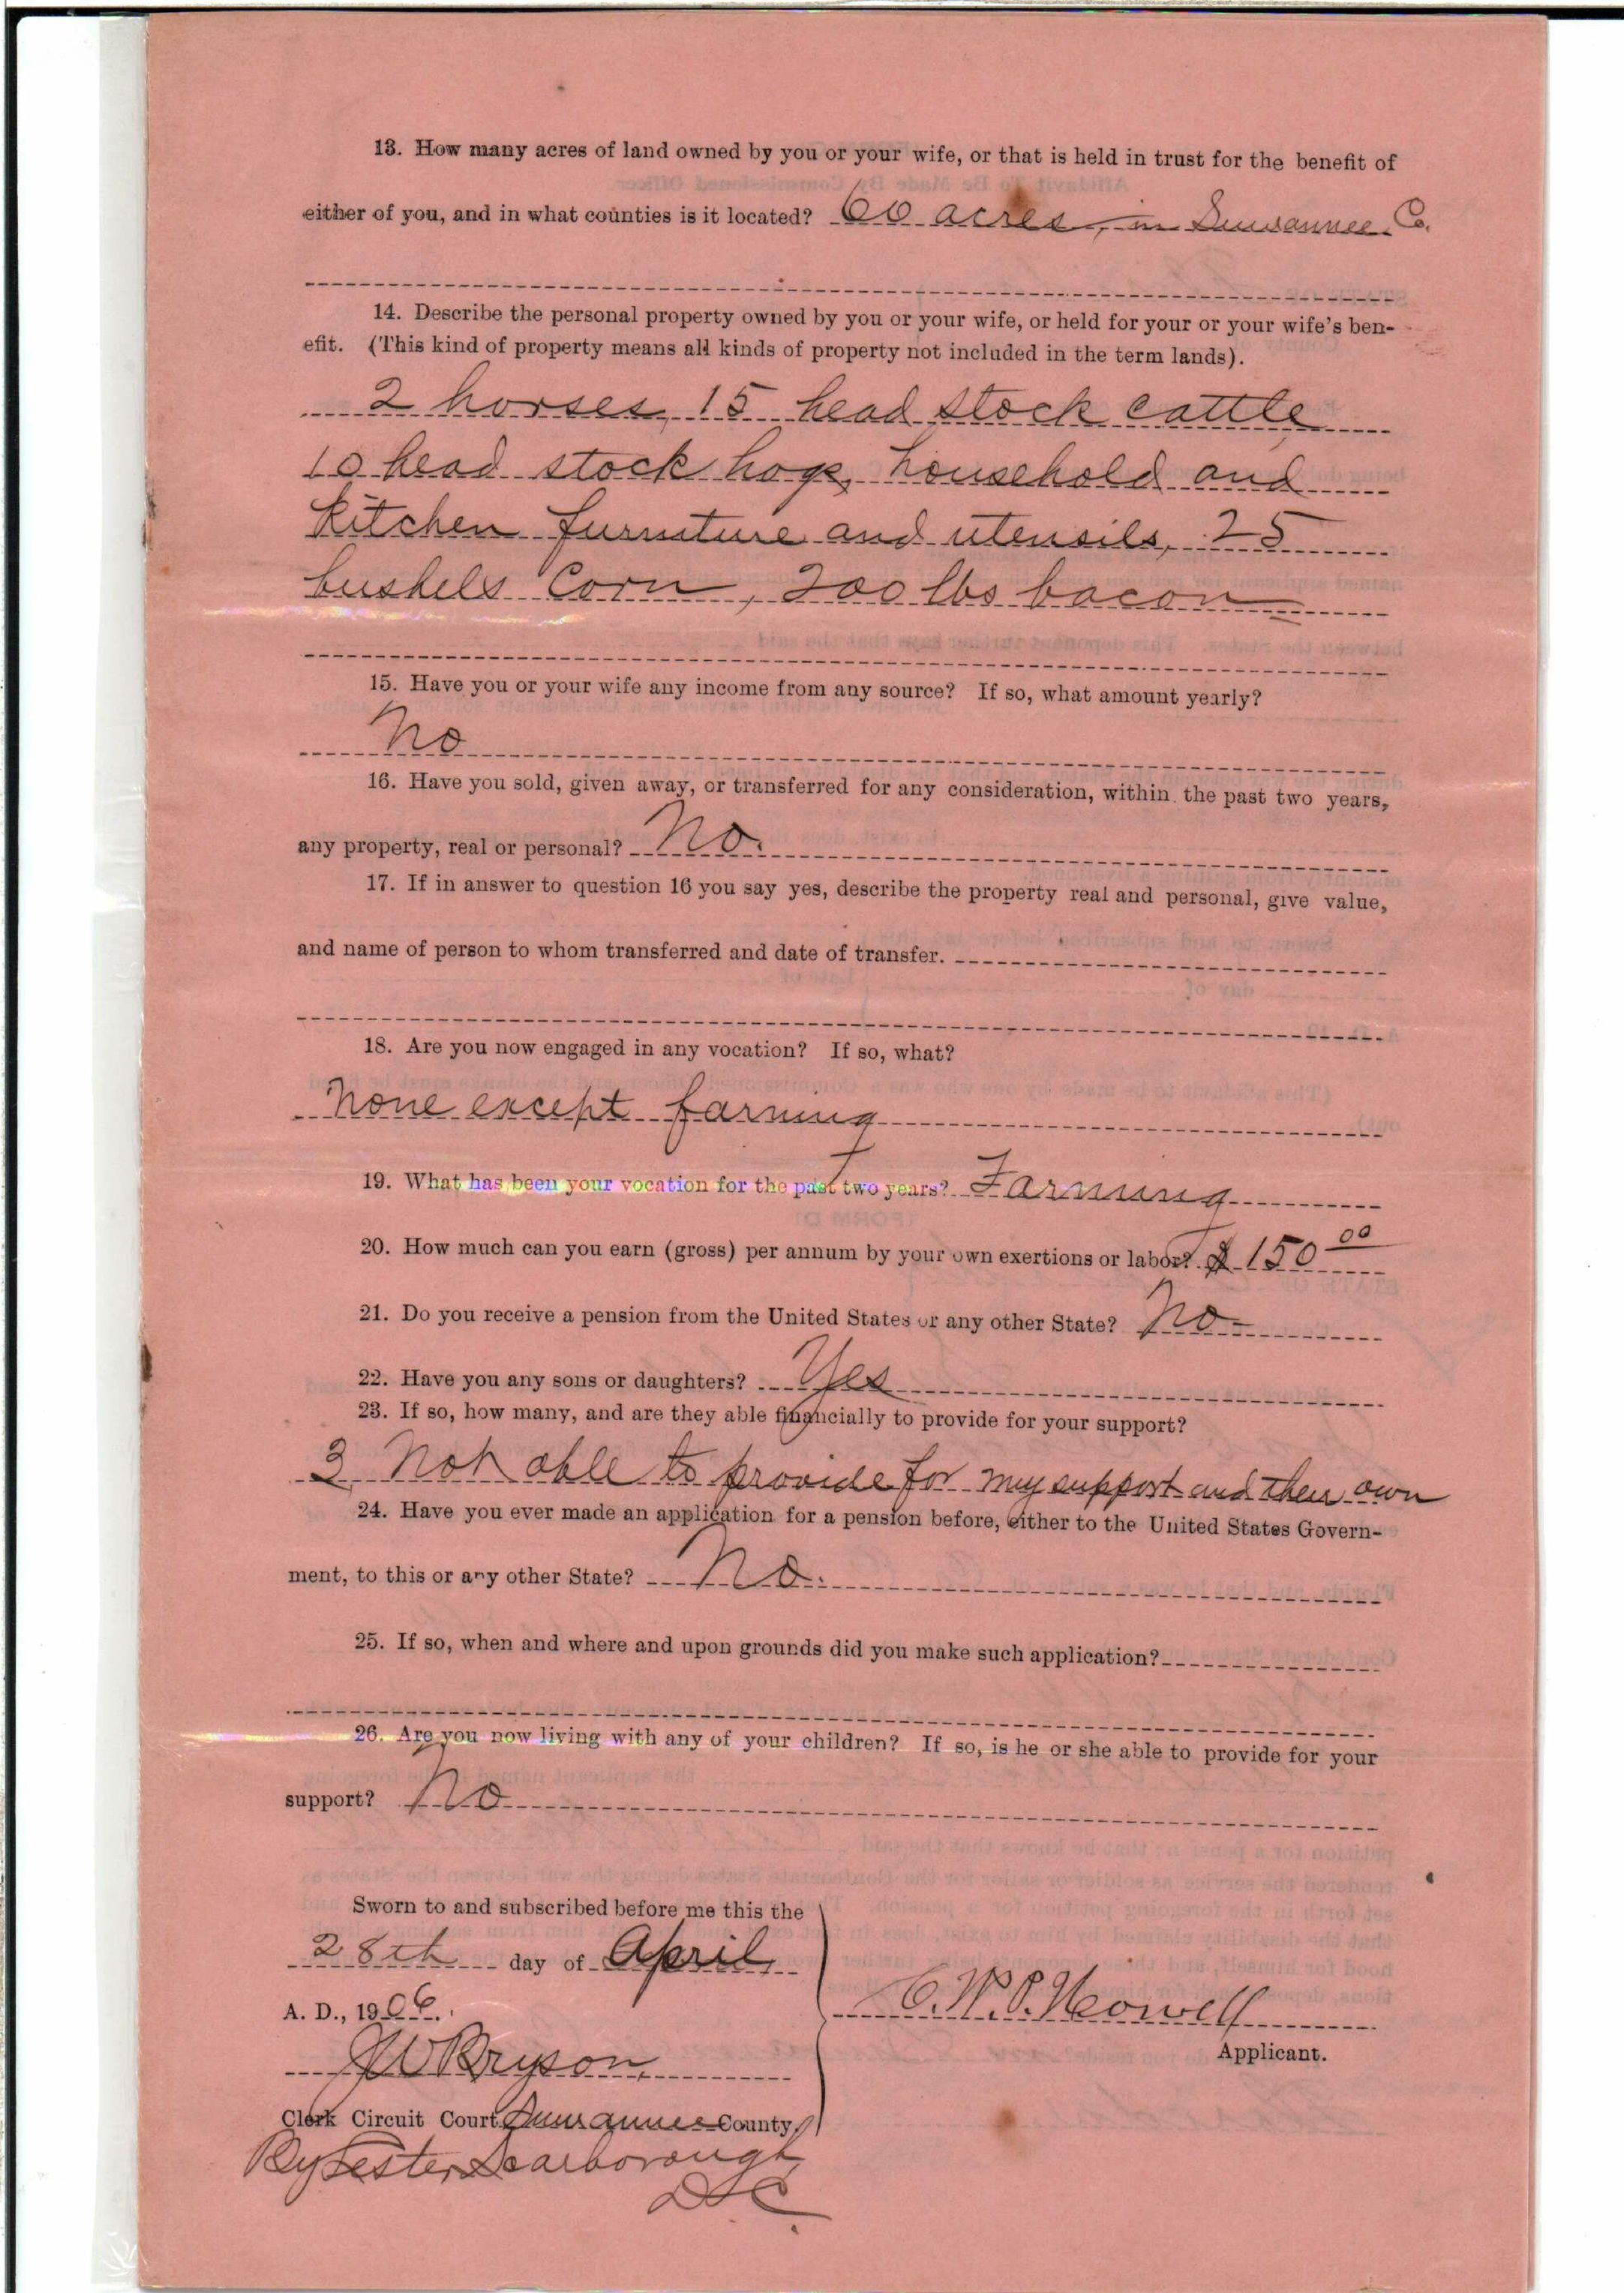 13. How many acres of land owned by you or your wife, or that is held in trust for the benefit of
either of you, and in what counties is it located? 60 acres, in Suwannee Co.
14. Describe the personal property owned by you or your wife, or held for your or your wife's ben-
efit. (This kind of property means all kinds of property not included in the term lands).
2 horses, 15 head stock cattle
10 head stock hogs, household and
kitchen furniture and utensils, 25
bushels Corn, 200 lbs bacon
15. Have you or your wife any income from any source? If so, what amount yearly?
No
16. Have you sold, given away, or transferred for any consideration, within the past two years,
any property, real or personal? No.
17. If in answer to question 16 you say yes, describe the property real and personal, give value,
and name of person to whom transferred and date of transfer.
18. Are you now engaged in any vocation? If so, what?
None except farming
19. What has been your vocation for the past two years? Farming
20. How much can you earn (gross) per annum by your own exertions or labor? $150 00
21. Do you receive a pension from the United States or any other State? No
22. Have you any sons or daughters? Yes
23. If so, how many, and are they able financially to provide for your support?
3 Not able to provide for my support and their own
24. Have you ever made an application for a pension before, either to the United States Govern-
ment, to this or any other State? No.
25. If so, when and where and upon grounds did you make such application?
26. Are you now living with any of your children? If so, is he or she able to provide for your
support? No
Sworn to and subscribed before me this the
28th day of April,
A. D., 1906.
C.W.P. Howell
Applicant.
JW Bryson,
Clerk Circuit Court Suwannee County,
By Lester Scarborough,
DC